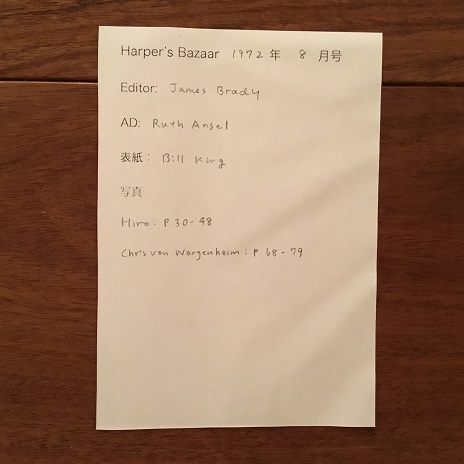 Harper's Bazaar 1972 年 8 月号
Editor: James Brady
AD: Ruth Ansel
表紙： Bill King
写真
Hiro: P 30-48
Chris von Wargenheim: P 68-79